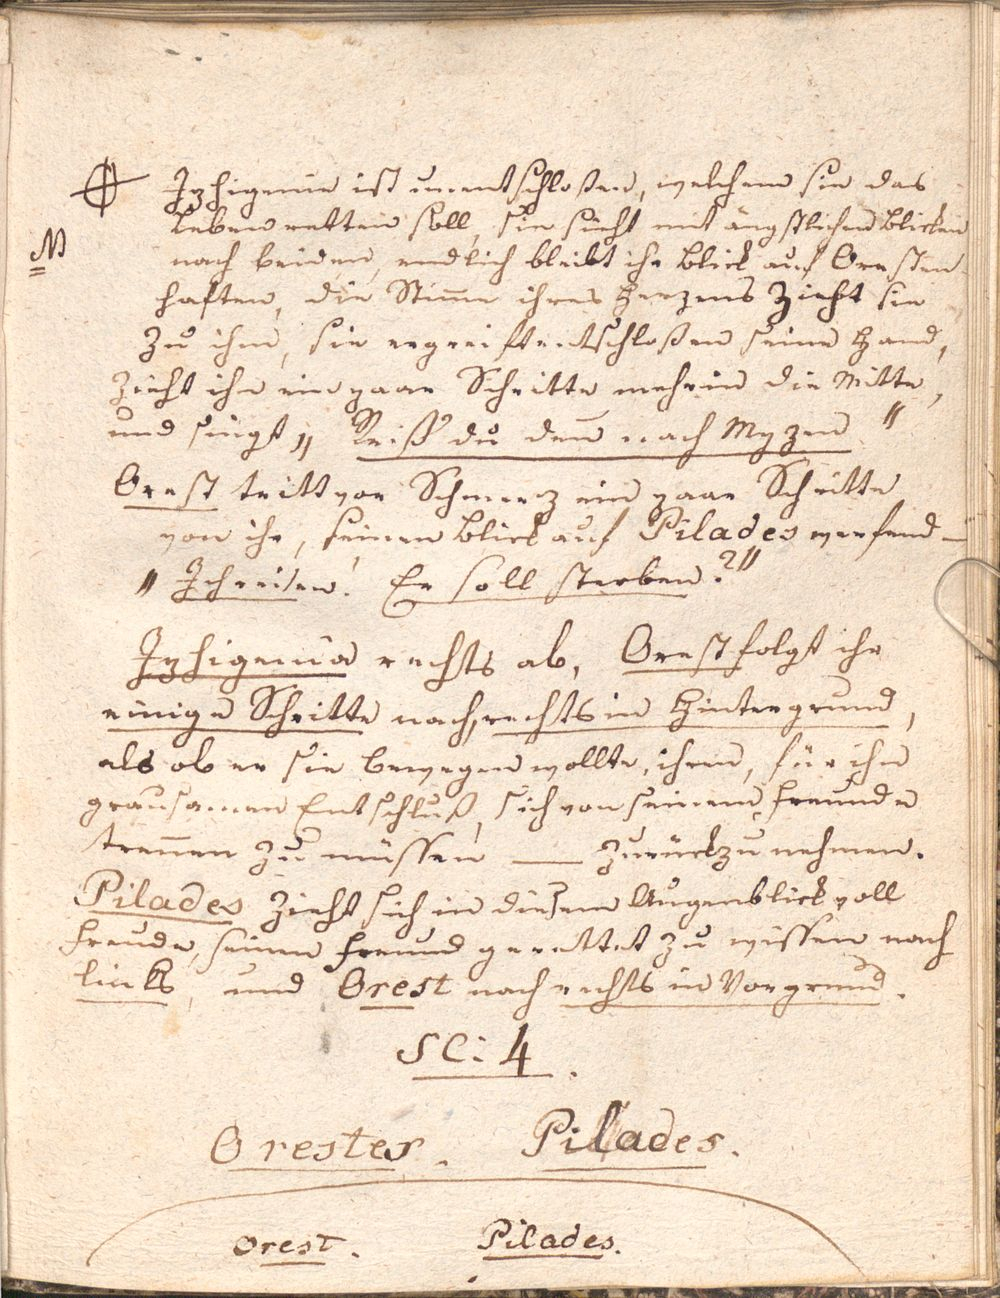 Iphigenia ist unentschloßen, welchem sie das
Leben retten soll, sie sieht mit ängstlichen Blicken
nach beiden, endlich bleibt ihr Blick auf Oresten
haften, die Stimme ihres Herzens zieht sie
zu ihm, sie ergreift entschloßen seine Hand,
zieht ihn ein paar Schritte mehr in die Mitte,
und singt „ Reiß' du den nach Myzen "
Orest tritt vor Schmerz ein paar Schritte
von ihr, seinen Blick auf Pilades werfend –
„ Ich reisen! Er soll sterben? "
Iphigenia rechts ab, Orest folgt ihr
einige Schritte nach, rechts in Hintergrund,
als ob er sie bewegen wollte, ihren, für ihn
grausamen Entschluß, sich von seinem Freunde
trennen zu müssen — zurückzunehmen.
Pilades zieht sich in diesem Augenblick voll
Freude, seinen Freund gerettet zu wissen nach
links, und Orest nach rechts in Vorgrund.
Sc: 4.
Orestes. Pilades.
Orest. Pilades.